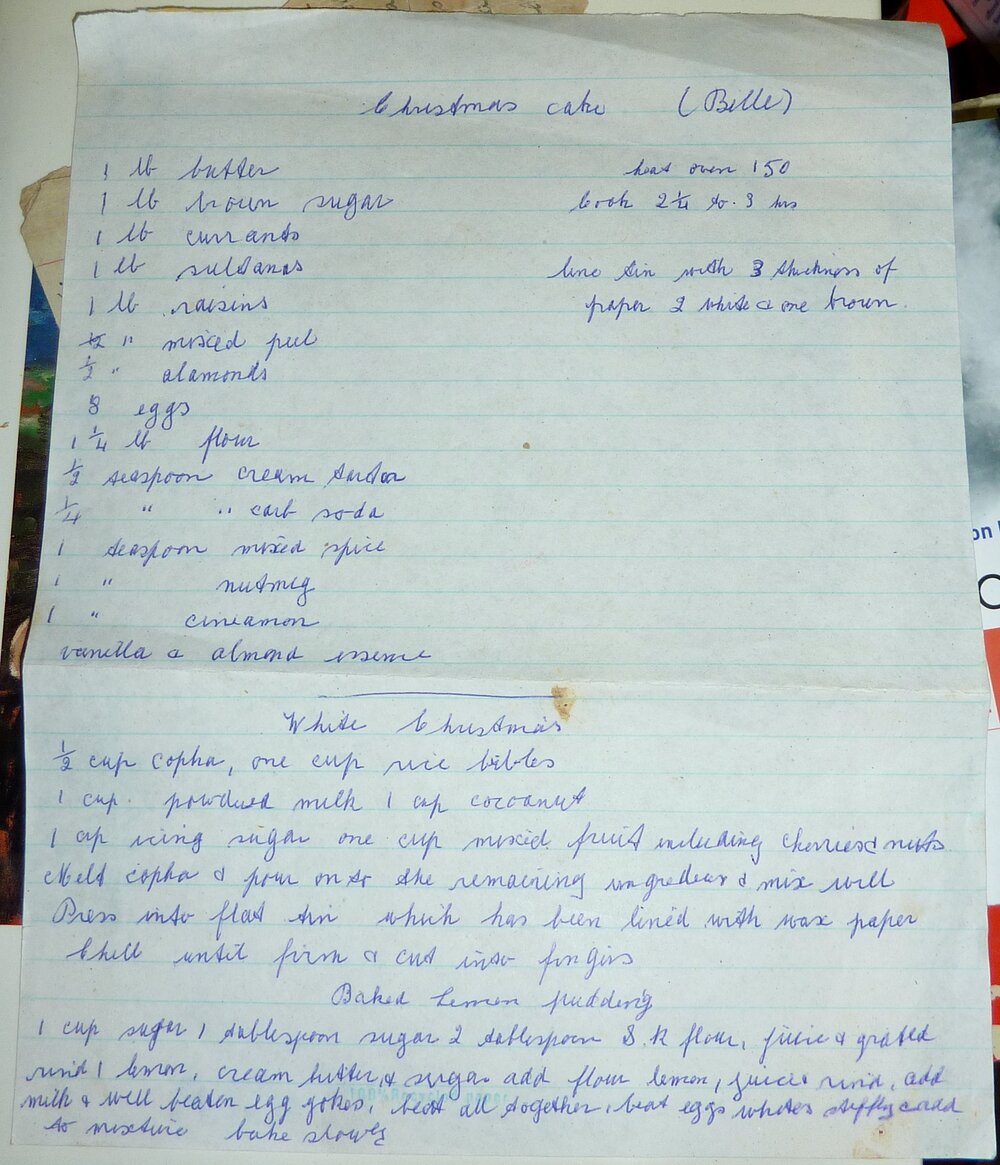 Christmas cake (Belle)
1 lb butter
heat oven 150
1 lb brown sugar
Cook 2¼ to 3 hrs
1 lb currants
1 lb sultanas
line tin with 3 thickness of
1 lb raisins
paper 2 white & one brown.
½ " mixed peel
½ " alamonds
8 eggs
1 ¼ lb flour
½ teaspoon cream tartar
¼ " " carb soda
1 teaspoon mixed spice
1 " nutmeg
1 " cineamon
vanilla & almond essence
White Christmas
½ cup copha, one cup rice bibles
1 cup. powdered milk 1 cup cocoanut
1 cup icing sugar one cup mixed fruit including cherries & nuts
Melt copha & pour onto the remaining & mix well
Press into flat tin which has been lined with wax paper
Chell until firm & cut into fingers
Baked Lemon pudding
1 cup sugar 1 tablespoon sugar 2 tablespoon S. R flour, juice & grated
rind 1 lemon, cream butter & sugar add flour lemon, juice rind, add
milk & well beaten egg yokes, beat all together, beat eggs whites stiffly & add
to mixture bake slowly
on